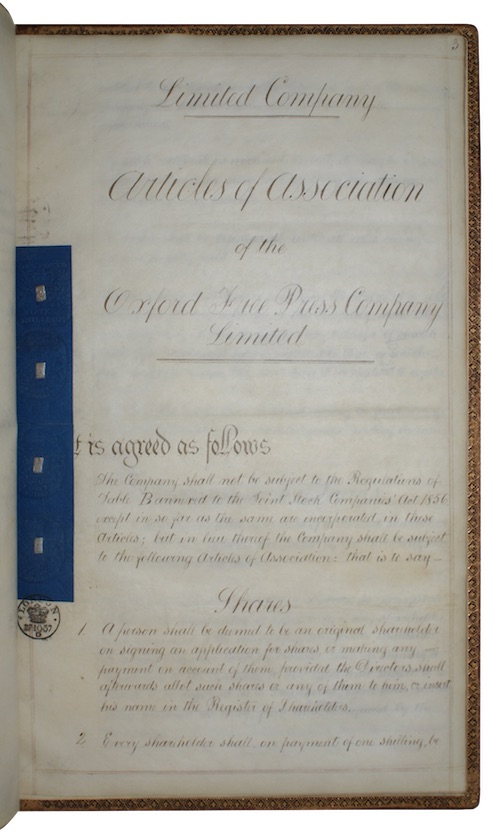 3
Limited Company
Articles of Association
of the
Oxford Free Press Company
Limited
t is agreed as follows
The Company shall not be subject to the Regulations of
Table B annexed to the Joint Stock Companies' Act 1856
except in so far as the same are incorporated in these
Articles; but in lieu thereof the Company shall be subject
to the following Articles of Association: that is to say—
Shares
1 A person shall be deemed to be an original shareholder
on signing an application for shares, or making any
payment on account of them, provided the Directors shall
afterwards allot such shares or any of them to him, or insert
his name in the Register of Shareholders.
2 Every shareholder shall, on payment of one shilling, be
LONDON